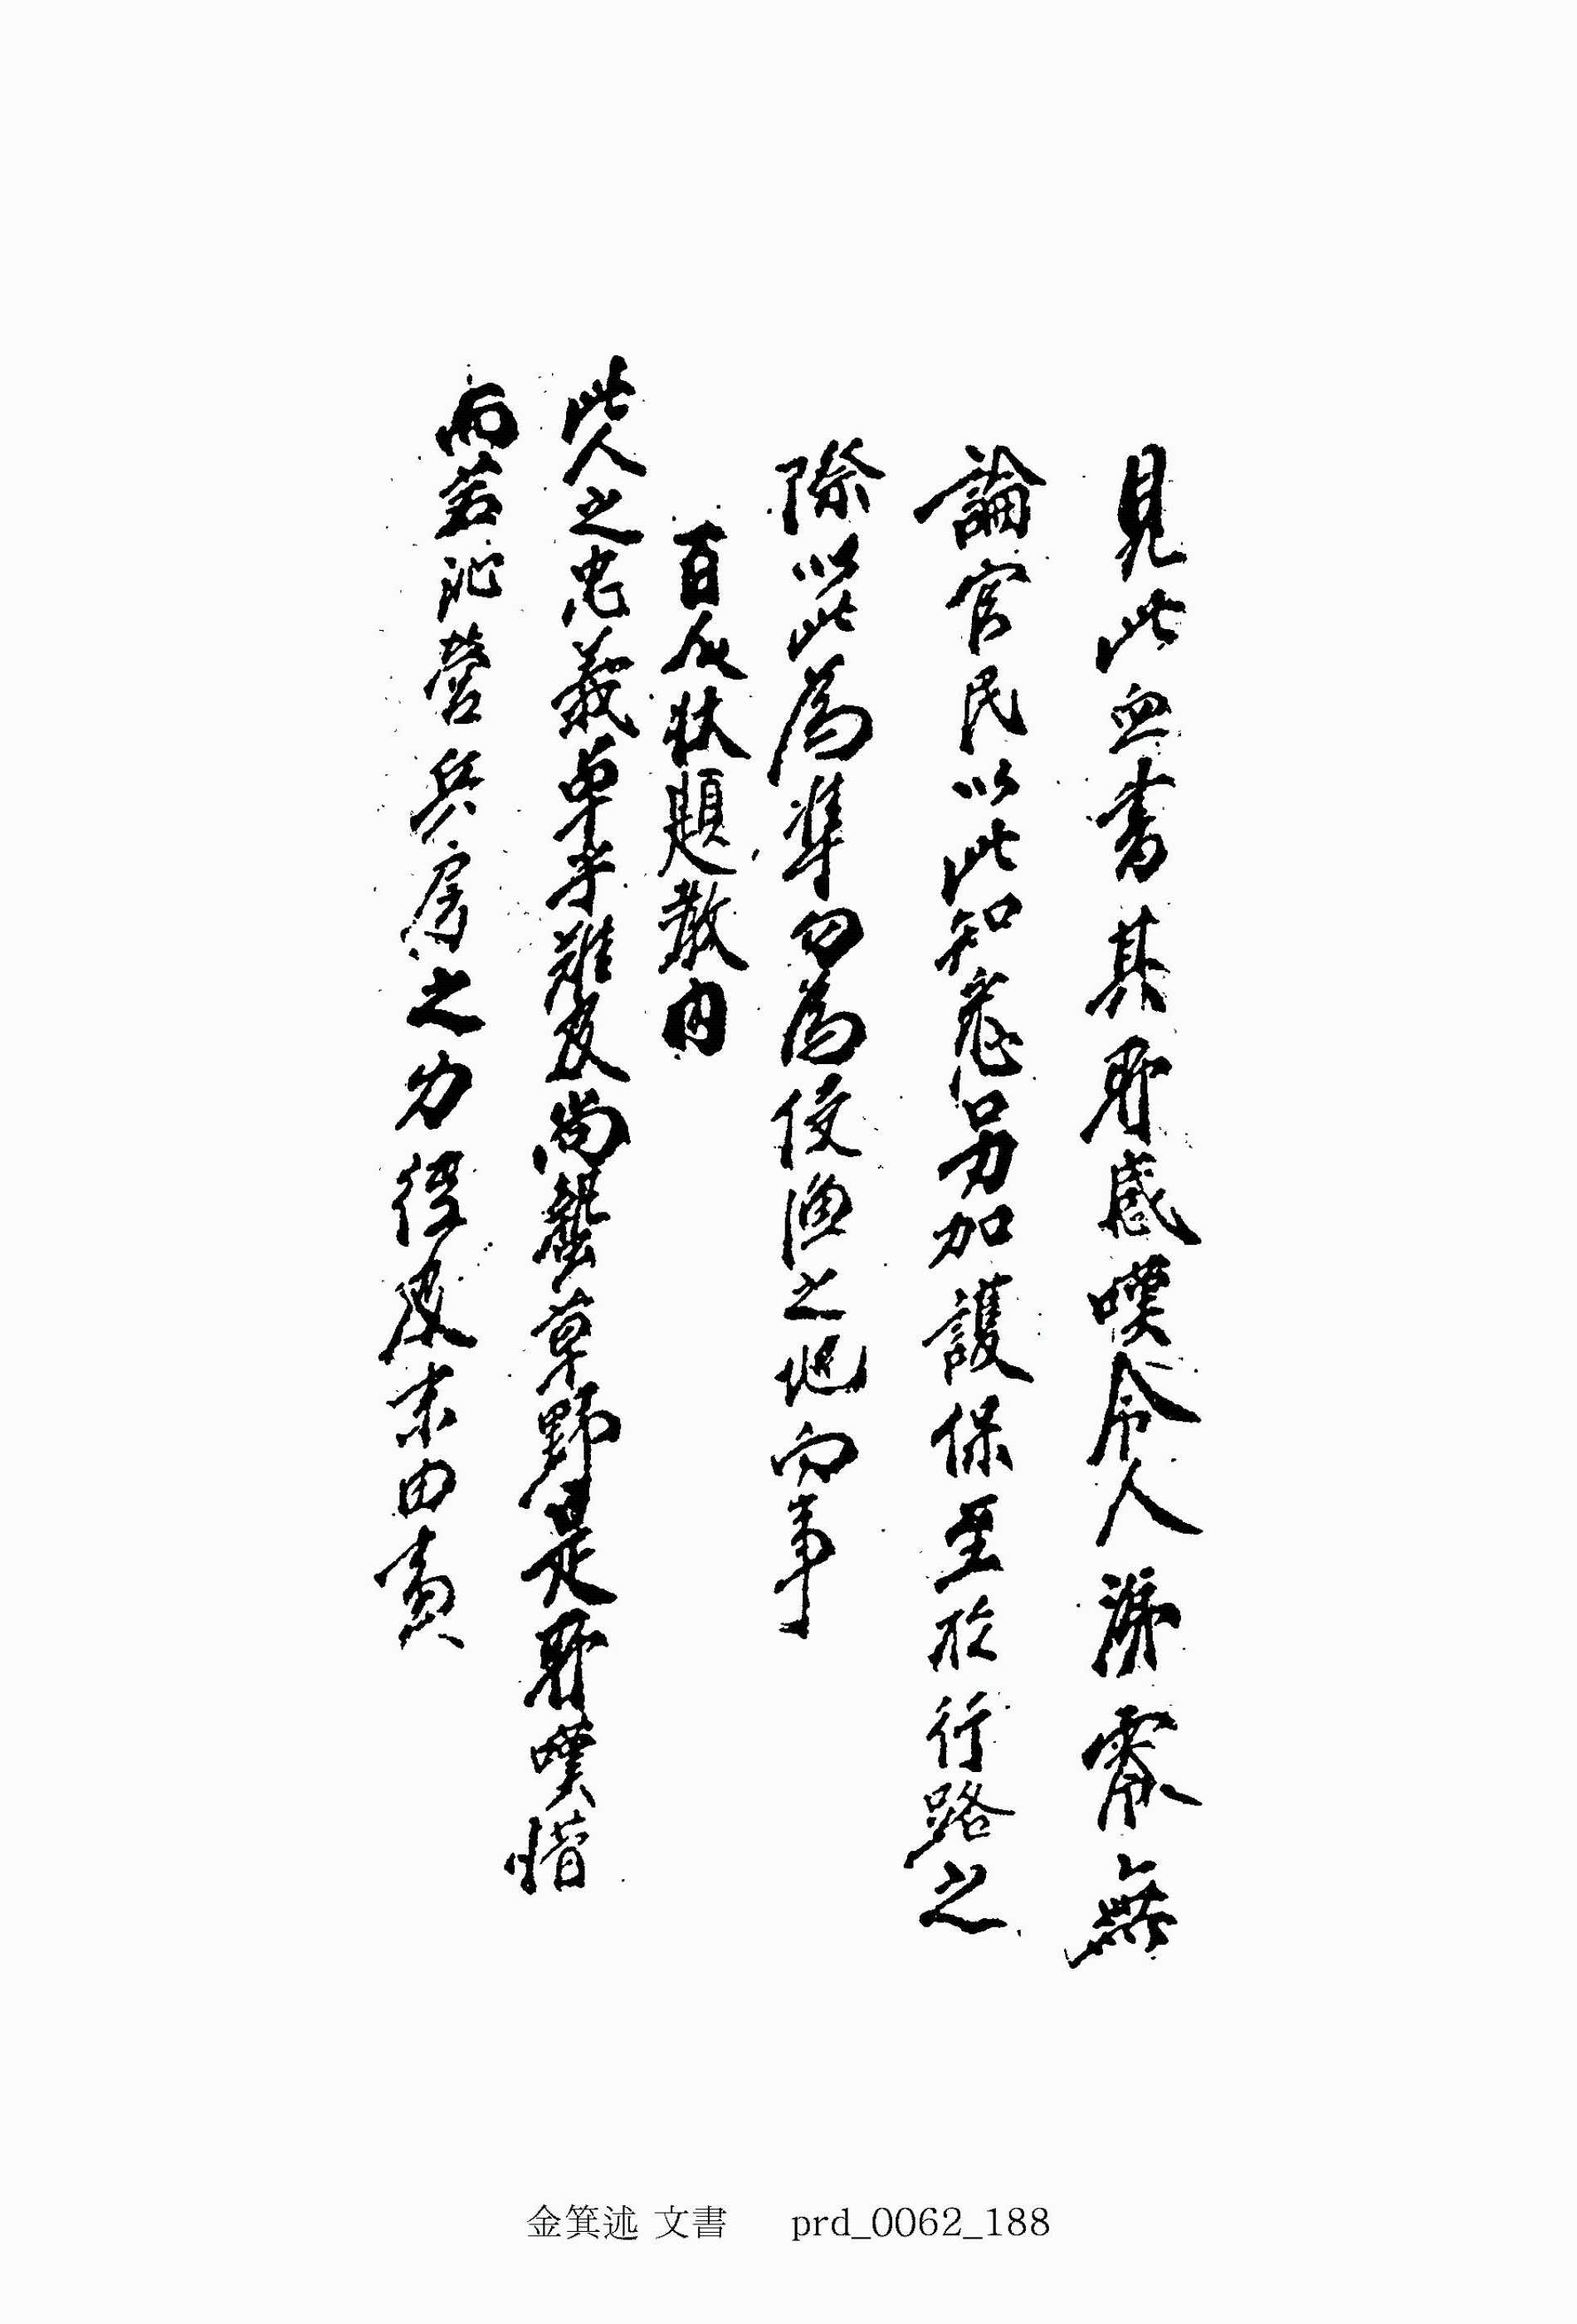 見此血書其所感嘆令人涕霰無
論官民以此知悉另加護保至於行路之
際以此爲準勿爲侵漁之地向事
百人狀題敎內
此人之忠義卓乎難及尚蟄草野是所嘆惜
而若沁營兵房之力役及末由責
金箕述 文書 prd_0062_188